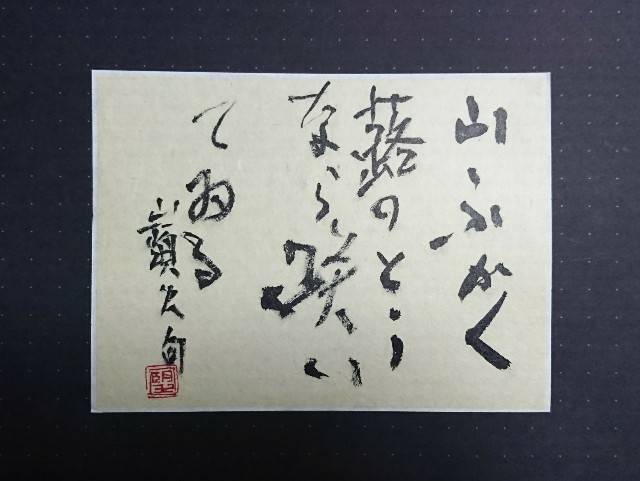 山ふかく
蕗のとう
なら咲い
てゐる
山頭火句